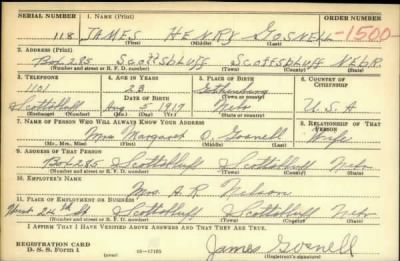 SERIAL NUMBER 1. NAME (Print) ORDER NUMBER
118 JAMES HENRY GOSNELL -1500-
(First) (Middle) (Last)
2. ADDRESS (Print)
Box 285 SCOTTSBLUFF SCOTTSBLUFF NEBR.
(Number and street or R. F. D. number) (Town) (County) (State)
3. TELEPHONE 4. AGE IN YEARS 5. PLACE OF BIRTH 6. COUNTRY OF CITIZENSHIP
1101 23 Gothenburg
DATE OF BIRTH
Scottsbluff Aug 5 1917 Nebr U.S.A
(Exchange) (Number) (Mo.) (Day) (Yr.) (State or country)
7. NAME OF PERSON WHO WILL ALWAYS KNOW YOUR ADDRESS 8. RELATIONSHIP OF THAT PERSON
Mrs Margaret O. Gosnell Wife
(Mr., Mrs., Miss) (First) (Middle) (Last)
9. ADDRESS OF THAT PERSON
Box 285 Scottsbluff Scottsbluff Nebr
(Number and street or R. F. D. number) (Town) (County) (State)
10. EMPLOYER'S NAME
Mrs. A. R. Nelson
11. PLACE OF EMPLOYMENT OR BUSINESS
West 24th St Scottsbluff Scottsbluff Nebr
(Number and street or R. F. D. number) (Town) (County) (State)
I AFFIRM THAT I HAVE VERIFIED ABOVE ANSWERS AND THAT THEY ARE TRUE.
REGISTRATION CARD
D. S. S. Form 1
16-17105
James Gosnell
(Registrant's signature)